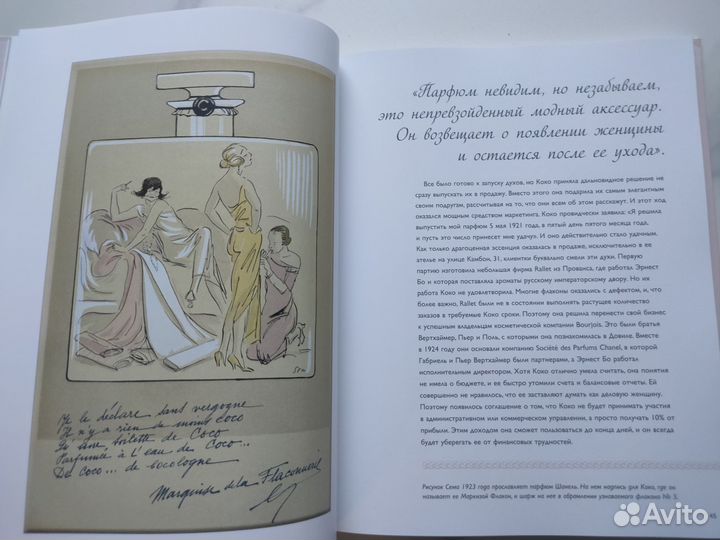 SEM
Je le déclare sans vergogne
Il n'y a rien de moins coco
Qu'une toilette de Coco
Parfumée à L'eau de Coco...
De Coco... de cocologne
Marquise de la Flaconnerie
«Парфюм невидим, но незабываем,
это непревзойденный модный аксессуар.
Он возвещает о появлении женщины
и остается после ее ухода».
Все было готово к запуску духов, но Коко приняла дальновидное решение не
сразу выпускать их в продажу. Вместо этого она подарила их самым элегантным
своим подругам, рассчитывая на то, что они всем об этом расскажут. И этот ход
оказался мощным средством маркетинга. Коко провидчески заявила: «Я решила
выпустить мой парфюм 5 мая 1921 года, в пятый день пятого месяца года,
и пусть это число принесет мне удачу». И оно действительно стало удачным.
Как только драгоценная эссенция оказалась в продаже, исключительно в ее
ателье на улице Камбон, 31, клиентки буквально смели эти духи. Первую
партию изготовила небольшая фирма Rallet из Прованса, где работал Эрнест
Бо и которая поставляла ароматы русскому императорскому двору. Но их
работа Коко не удовлетворила. Многие флаконы оказались с дефектом, и, что
более важно, Rallet были не в состоянии выполнять растущее количество
заказов в требуемые Коко сроки. Поэтому она решила перенести свой бизнес
к успешным владельцам косметической компании Bourjois. Это были братья
Вертхаймер, Пьер и Поль, с которыми она познакомилась в Довиле. Вместе
в 1924 году они основали компанию Société des Parfums Chanel, в которой
Габриель и Пьер Вертхаймер были партнерами, а Эрнест Бо работал
исполнительным директором. Хотя Коко отлично умела считать, она понятия
не имела о бюджете, и ее быстро утомили счета и балансовые отчеты. Ей
совершенно не нравилось, что ее заставляют думать как деловую женщину.
Поэтому появилось соглашение о том, что Коко не будет принимать участия
в административном или коммерческом управлении, а просто получает 10% от
прибыли. Этим доходом она сможет пользоваться до конца дней, и он всегда
будет уберегать ее от финансовых трудностей.
Рисунок Сема 1923 года прославляет парфюм Шанель. На нем надпись для Коко, где он
называет ее Маркизой Флакон, и шарж на нее в обрамлении узнаваемого флакона № 5.
45
Avito